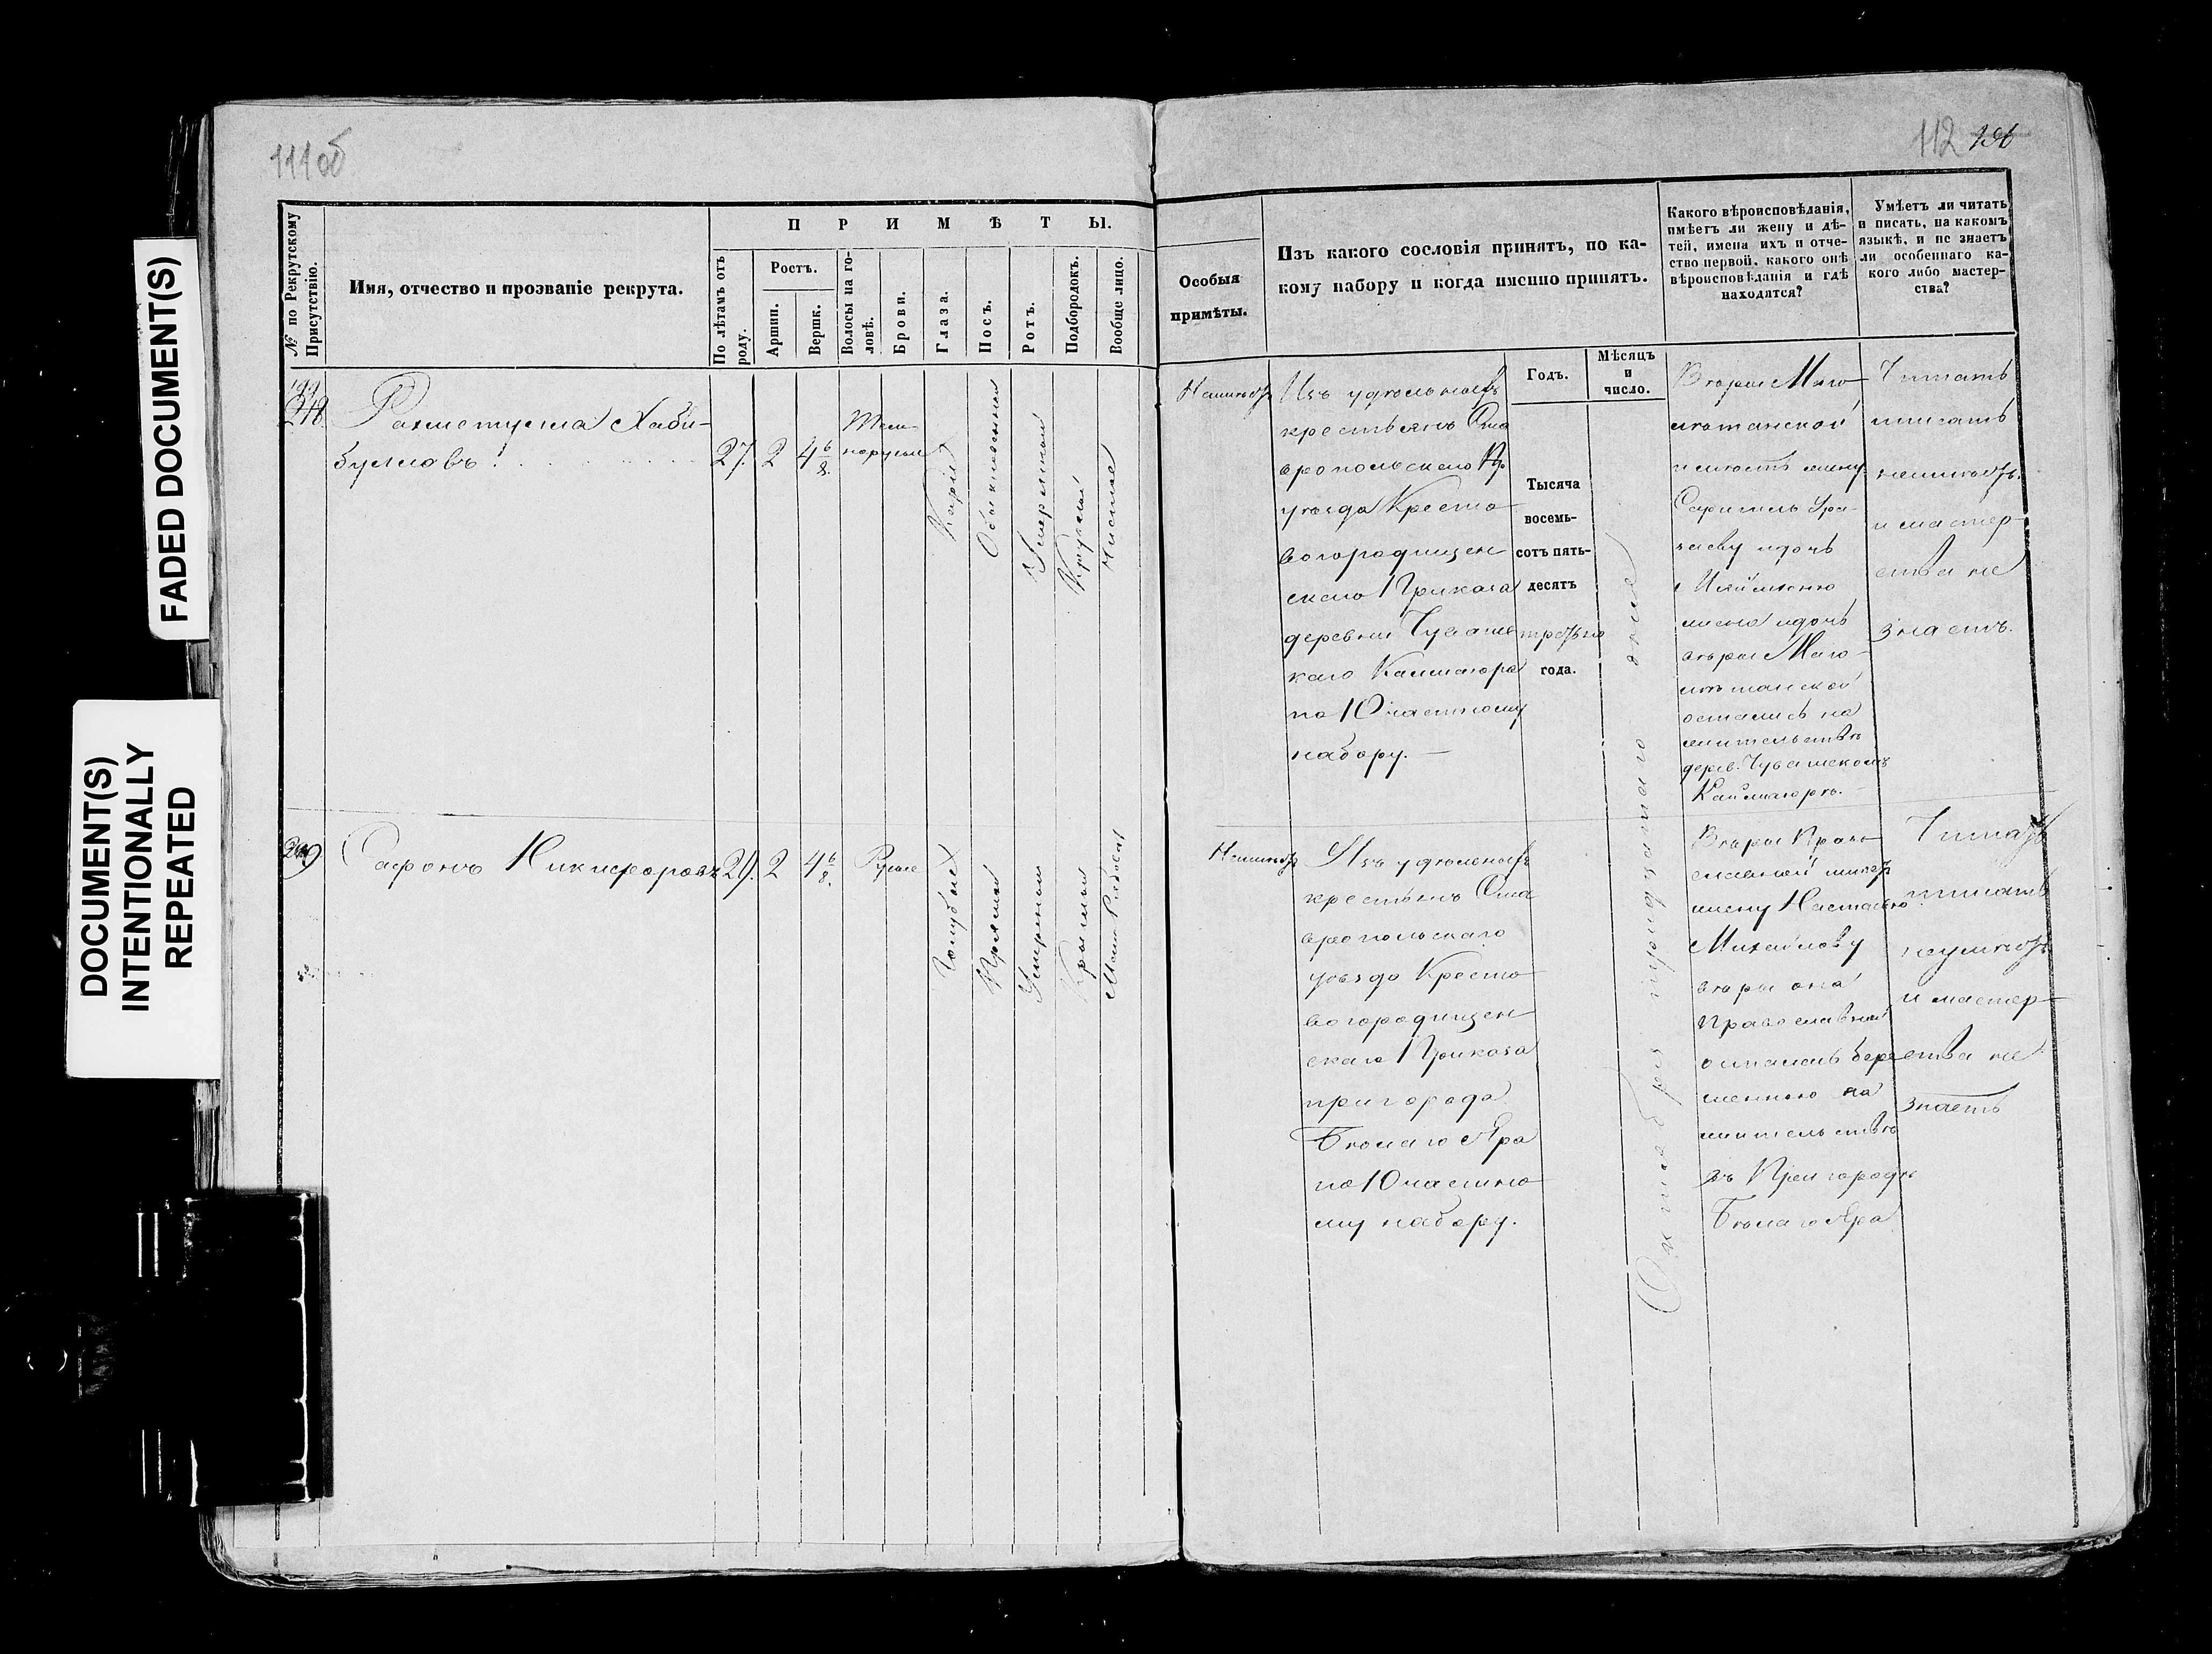 FADED DOCUMENT(S)
DOCUMENT(S)
INTENTIONALLY
REPEATED
111об
№ по Рекрутскому
Присутствію.
Имя, отчество и прозваніе рекрута.
ПРИМѢТЫ.
По лѣтамъ отъ
роду.
Ростъ.
Аршин.
Вершк.
Волосы на го-
ловѣ.
Брови.
Глаза.
Носъ.
Ротъ.
Подбородокъ.
Вообще лицо.
Рахметулла Хаби-
булловъ.
27.
2
4 6/8.
Темно
норусые
Карія
Обыкновенный
Умеренный
Круглый
Чистое
Сафонъ Никифоровъ
29.
2
4 6/8.
Русые
Голубые
Прямой
Умеренный
112
Особыя
примѣты.
Изъ какого сословія принятъ, по ка-
кому набору и когда именно принятъ.
Какого вѣроисповѣданія,
имѣетъ ли жену и дѣ-
тей, имена ихъ и отче-
ство первой, какого онѣ
вѣроисповѣданія и гдѣ
находятся?
Умѣетъ ли читать
и писать, на какомъ
языкѣ, и не знаетъ
ли особеннаго ка-
кого либо мастер-
ства?
Годъ.
Мѣсяцъ
и
число.
Неимѣетъ
Изъ удѣльныхъ
крестьянъ Ста
вропольскаго
уѣзда Кресто
вогородищен
скаго Приказа
деревни Чуваш
каго Калмаюра
по 10 частному
набору.
Тысяча
восемь-
сотъ пять-
десятъ
третьяго
года.
Октября тридцатаго дня
Вѣры Маго
метанской
имѣетъ жену
дочь
дочь
вѣры Маго-
метанской
остались на
жительствѣ
дерев. Чувашскомъ
Калмаюрѣ.
Читать
писать
неумѣетъ.
и мастер-
ства не
знаетъ.
Неимѣетъ
Изъ удѣльныхъ
крестьянъ Ста
вропольскаго
уѣзда Кресто
вогородищен
скаго Приказа
пригорода
Бѣлаго Яра
по 10 частно
му набору.
Вѣры Право
славной имѣетъ
жену Настасью
Михайлову
вѣры она
Православной
осталась бере
менною на
жительствѣ
въ Пригородѣ
Бѣлаго Яра
Читать
писать
неумѣетъ
и мастер-
ства не
знаетъ